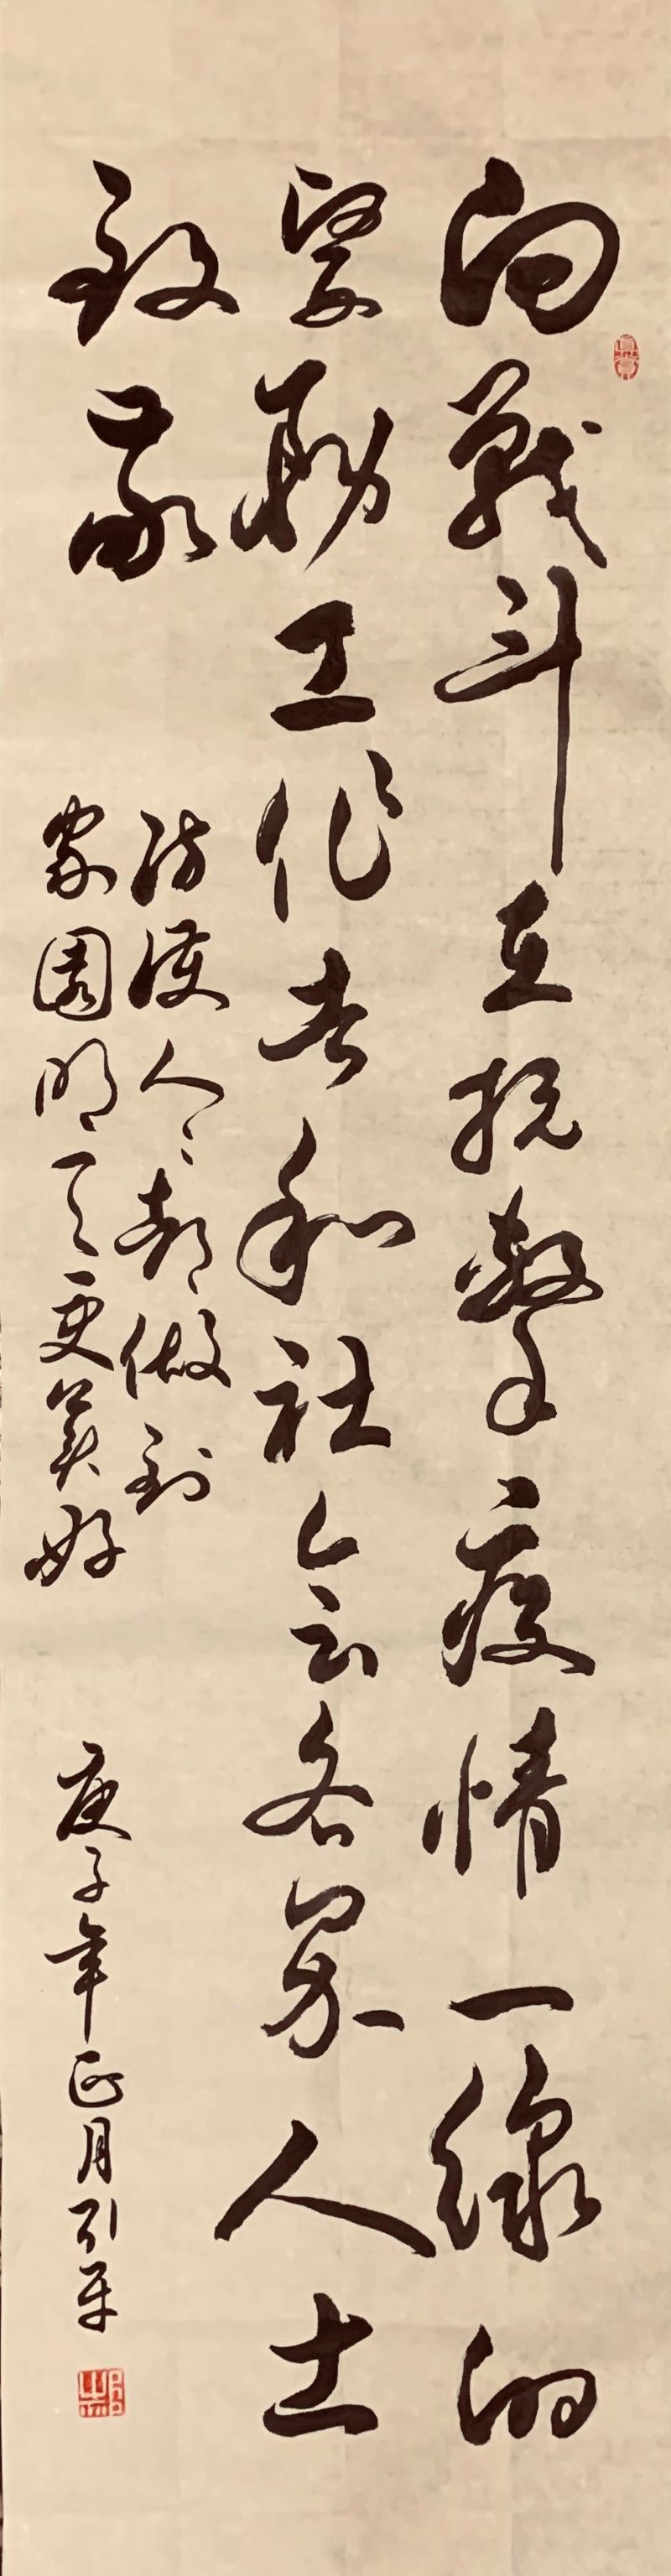 向戰斗在抗擊疫情一線的
醫務工作者和社会各界人士
致敬
防護人人都做到
家園明天更美好
庚子年正月引平